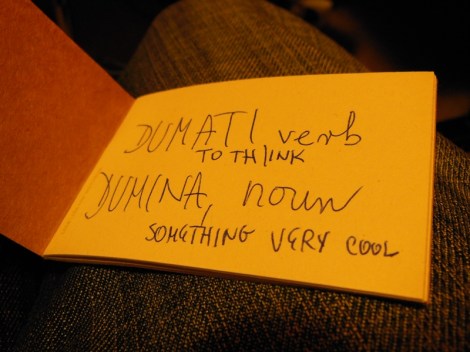 DUMATI verb
TO THINK
DUMINA, noun
SOMETHING VERY COOL